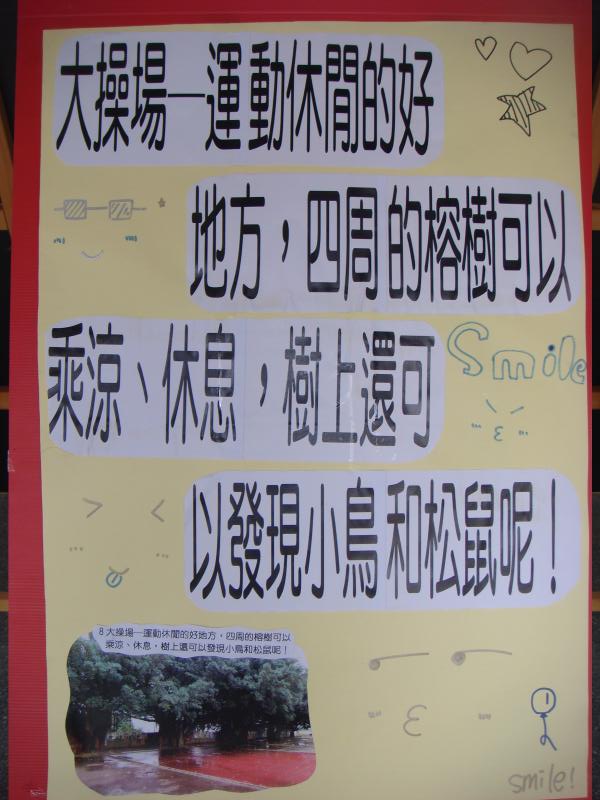 大操場—運動休閒的好
地方，四周的榕樹可以
乘涼、休息，樹上還可
Smile
以發現小鳥和松鼠呢！
8大操場—運動休閒的好地方，四周的榕樹可以
乘涼、休息，樹上還可以發現小鳥和松鼠呢！
smile!